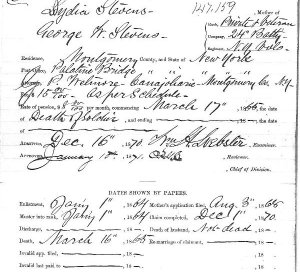 Lydia Stevens Mother of
147,159
George W. Stevens Rank, Private & Veteran
Company, 24" Batty
Regiment, N.Y. Vols
Residence, Montgomery County, and State of New York
Post-office, Palatine Bridge
P Wetmore Canajoharie Montgomery Co. N.Y.
As per Schedule
Rate of pension, 8 per month, commencing March 17" 1865, and ending
Death of Soldier and ending
Dec 16" 1870 Wm H. Webster Examiner.
January 1871 Reviewer.
Chief of Division.
DATES SHOWN BY PAPERS.
Enlistment, Jan'y 1" 1864 Mother's application filed, Aug 3" 1865
Muster into rank, Jan'y 1" 1864 Claim completed, Dec 1" 1870
Discharge, 18 Death of husband, Now dead, 18
Death, March 16" 1865 Re-marriage of claimant, 18
Invalid app. filed, 18 , 18
Invalid last paid to , 18 , 18